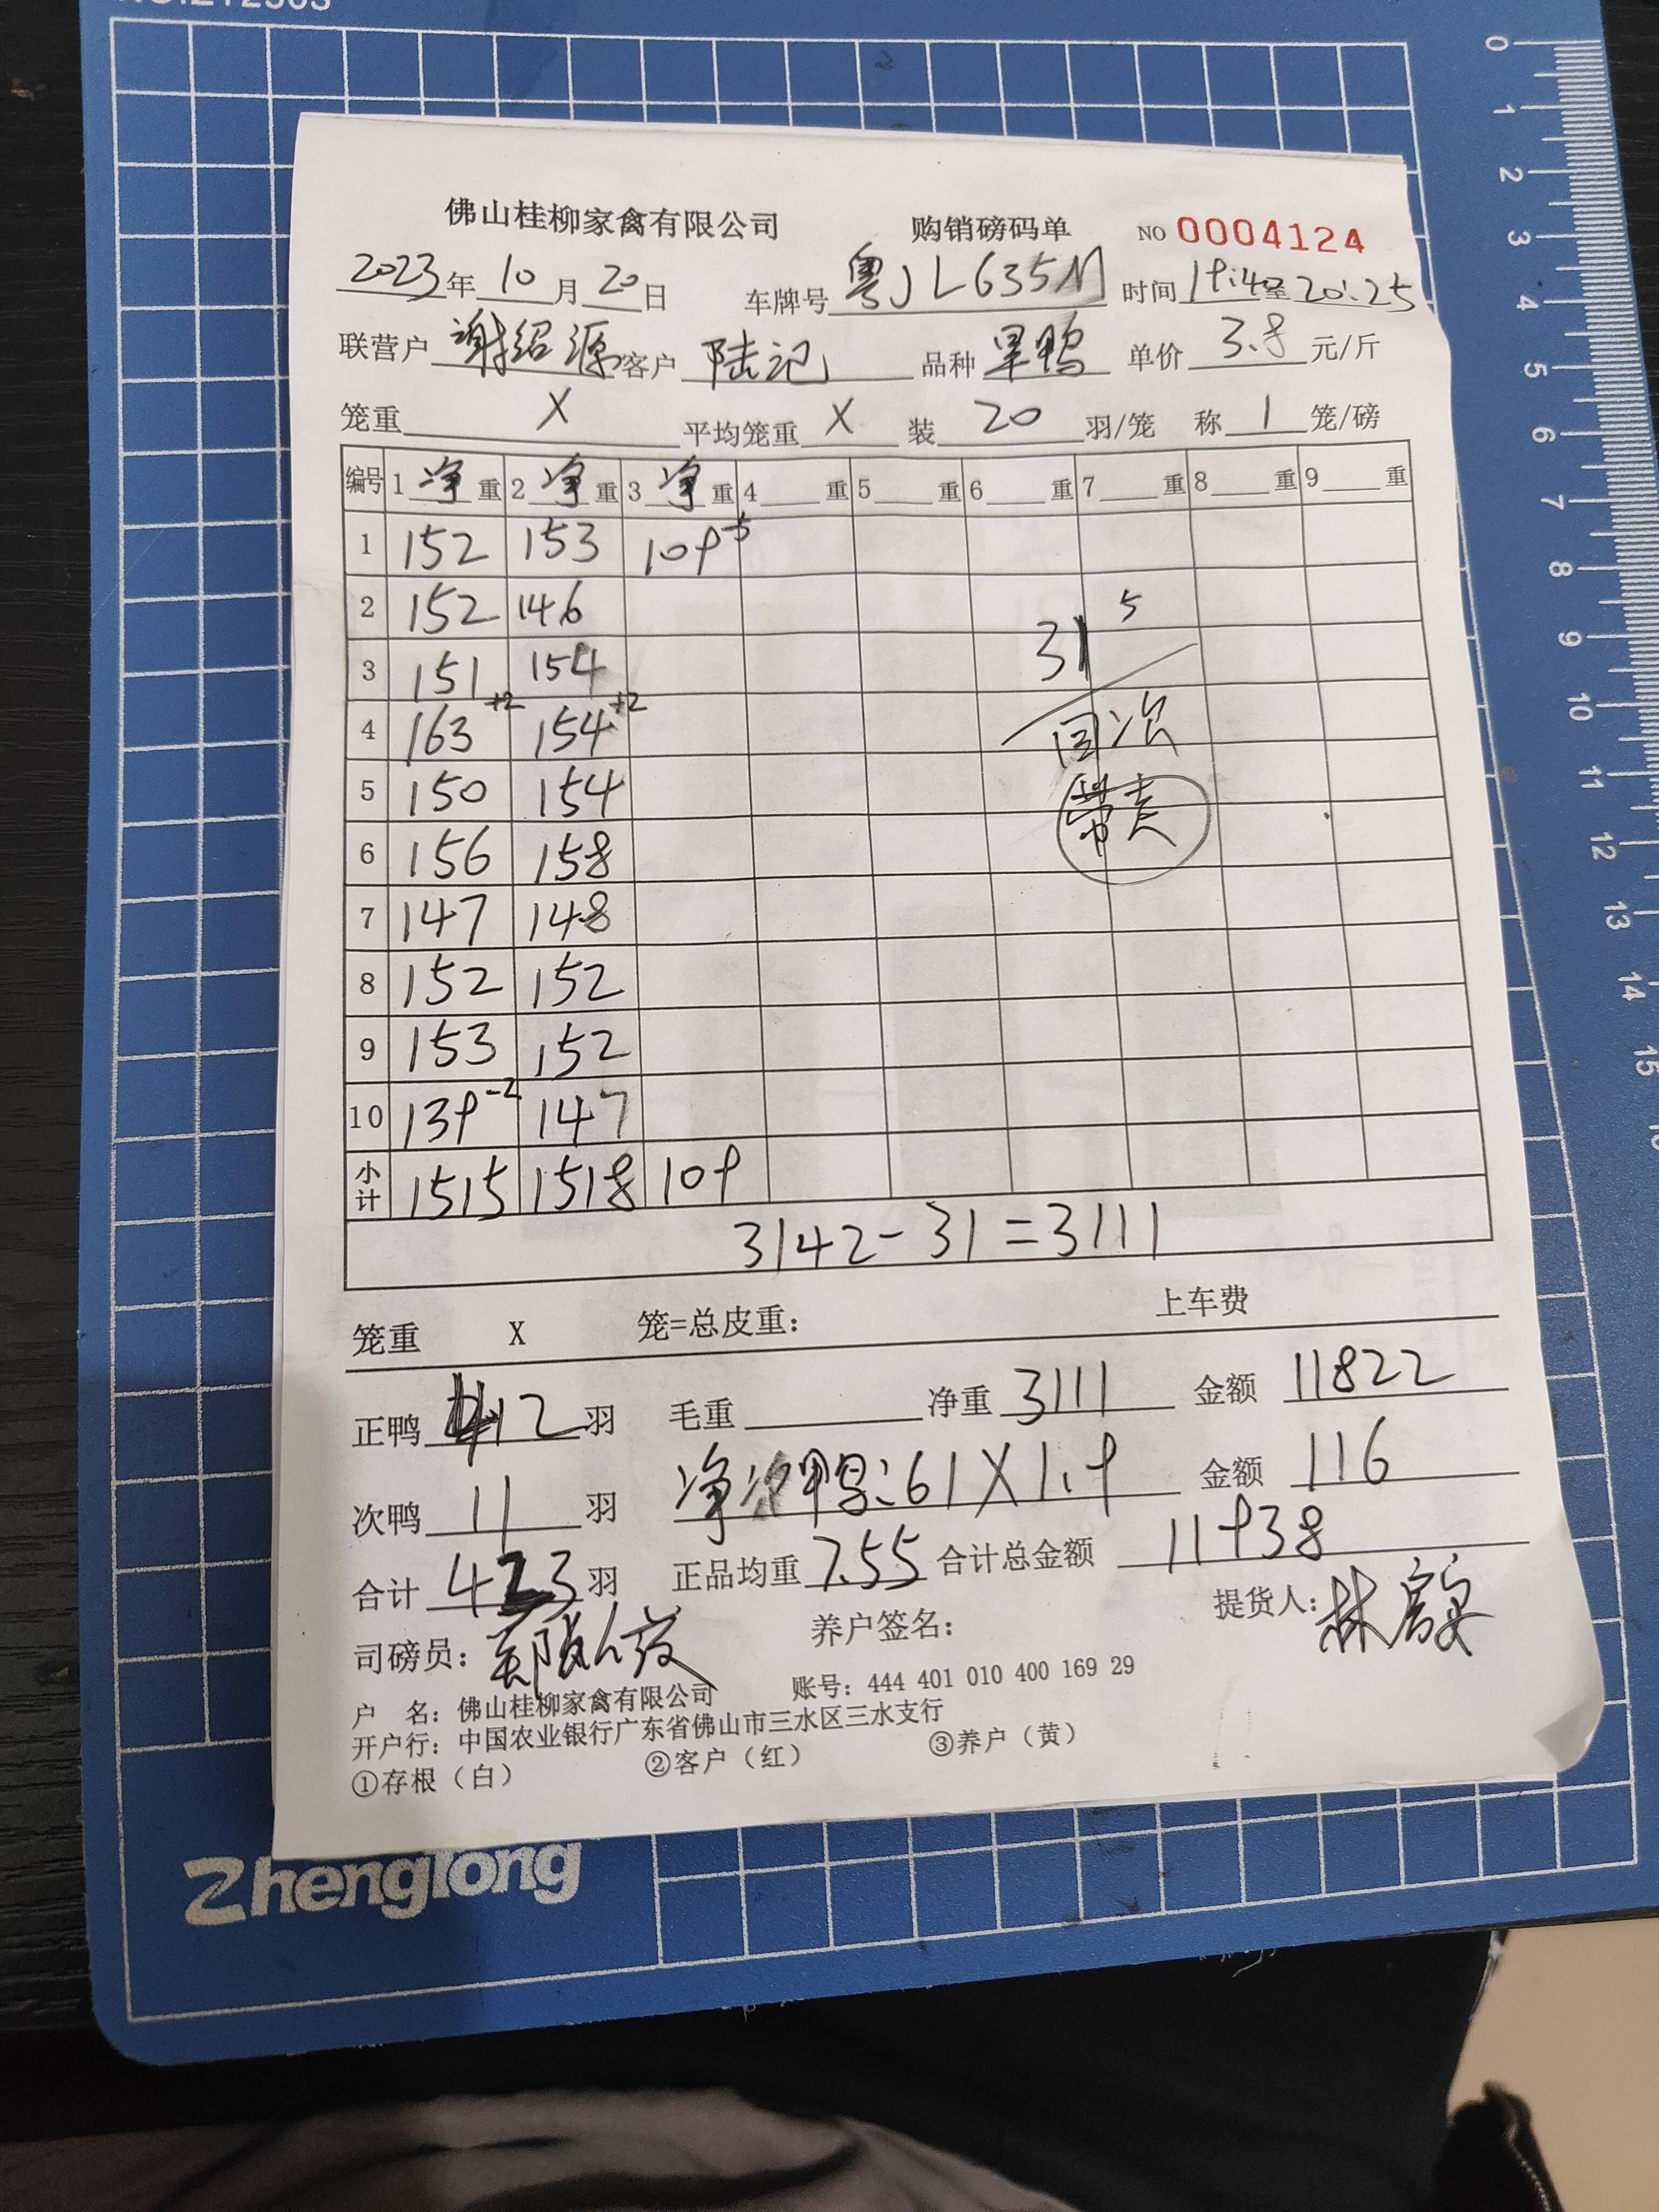 佛山桂柳家禽有限公司 购销磅码单 NO 0004124
2023年10月20日 车牌号 粤JL635M 时间 19:40至20:25
联营户 谢绍源 客户 陆记 品种 旱鸭 单价 3.8 元/斤
笼重 X 平均笼重 X 装 20 羽/笼 称 1 笼/磅
编号 1 净 重 2 净 重 3 净 重 4 重 5 重 6 重 7 重 8 重 9 重
1 152 153 109 -5
2 152 146
3 151 154
4 163 +2 154 +2
5 150 154
6 156 158
7 147 148
8 152 152
9 153 152
10 139 -2 147
小计 1515 1518 109
31 5
回次
带走
3142-31=3111
笼重 X 笼=总皮重: 上车费
正鸭 412 羽 毛重 净重 3111 金额 11822
次鸭 11 羽 净次鸭:61X1.9 金额 116
合计 423 羽 正品均重 7.55 合计总金额 11938
司磅员: 养户签名: 提货人:林
户 名: 佛山桂柳家禽有限公司 账号: 444 401 010 400 169 29
开户行: 中国农业银行广东省佛山市三水区三水支行
①存根（白） ②客户（红） ③养户（黄）
Zhenglong
0
1
2
3
4
5
6
7
8
9
10
11
12
13
14
15